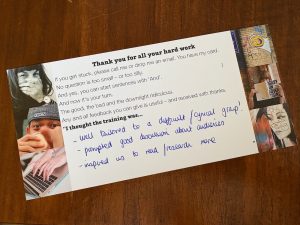 Thank you for all your hard work
If you get stuck, please call me or drop me an email. You have my card.
No question is too small – or too silly.
And yes, you can start sentences with 'And'.
And now it's your turn.
The good, the bad and the downright ridiculous.
Any and all feedback you can give is useful – and received with thanks.
"I thought the training was...
- well tailored to a difficult / cynical group!
- prompted good discussion about audiences
- inspired us to read / research more